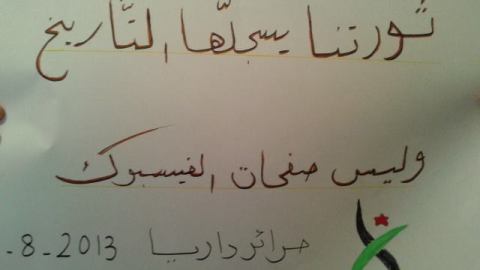 ثورتنا يسجلّها التَّاريخ
وليس صفحات الفيسبوك
حرائر داريا -8-2013